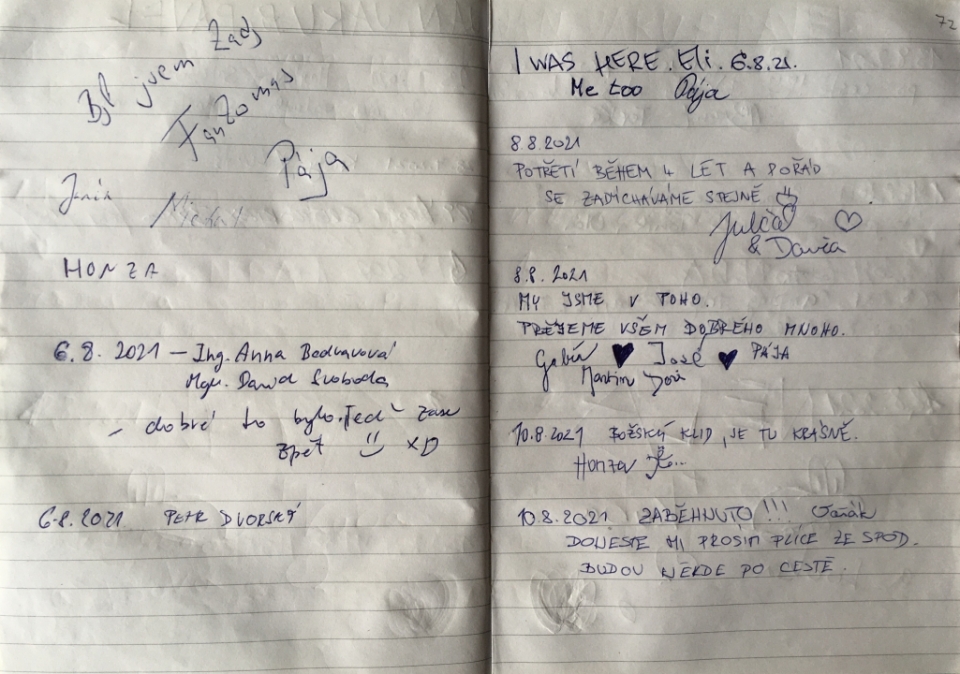 Byl jsem zady
Fantomas
Pája
HONZA
6. 8. 2021 – Ing. Anna Bednavová
Mgr. David Svoboda
– dobré to bylo. Teď zase
zpět XD
6.8.2021 PETR DVORSKÝ
72
I WAS HERE. Eli. 6.8.21.
Me too Pája
8.8.2021
POTŘETÍ BĚHEM 4 LET A POŘÁD
SE ZADÝCHÁVÁME STEJNĚ
Julča
& Davča
8.8.2021
MY JSME V TOHO.
PŘEJEME VŠEM DOBRÉHO MNOHO.
José PÁJA
Martin
10.8.2021 BOŽSKÝ KLID, JE TU KRÁSNĚ.
Honza
10.8.2021 ZABĚHNUTO!!!
DONESTE MI PROSÍM PLÍCE ZE SPOD.
BUDOU NĚKDE PO CESTĚ.